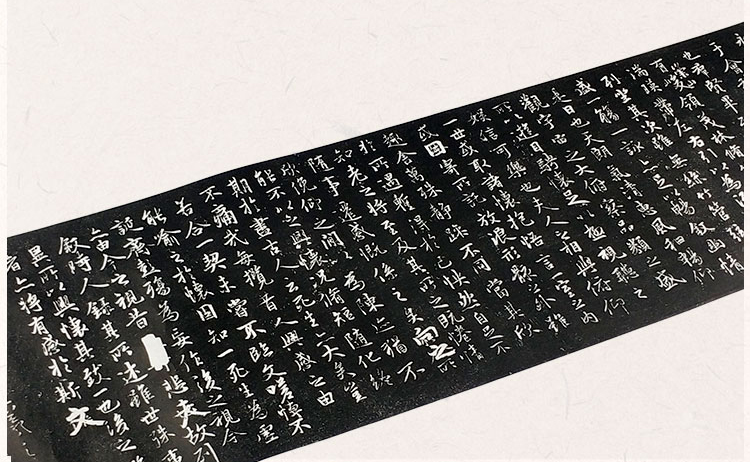 永
于會
也羣賢畢
有崇山峻領茂林脩
湍暎帶左右引以為
列坐其次雖無絲竹管弦
盛一觴一詠亦足以暢敘幽情
是日也天朗氣清惠風和暢仰
觀宇宙之大俯察品類之盛
所以遊目騁懷足以極視聽之
娛信可樂也夫人之相與俯仰
一世或取諸懷抱悟言一室之內
或因寄所託放浪形骸之外雖
趣舍萬殊靜躁不同當其欣
於所遇蹔得於己快然自足不
知老之將至及其所之既惓情
隨事遷感慨係之矣向之所
欣俛仰之間以為陳迹猶不
能不以之興懷況脩短隨化終
期於盡古人云死生亦大矣豈
不痛哉每攬昔人興感之由
若合一契未嘗不臨文嗟悼不
能喻之於懷固知一死生為虛
誕齊彭殤為妄作後之視今
亦由今之視昔悲夫故列
敘時人錄其所述雖世殊事
異所以興懷其致一也後之
者亦將有感於斯文